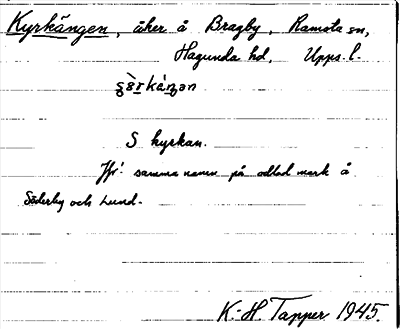 Kyrkängen, åker å Bragby, Ramsta sn,
Hagunda hd, Upps. l.
S kyrkan.
Jfr: samma namn på odlad mark å
Söderby och Lund.
K.-H. Tapper 1945.